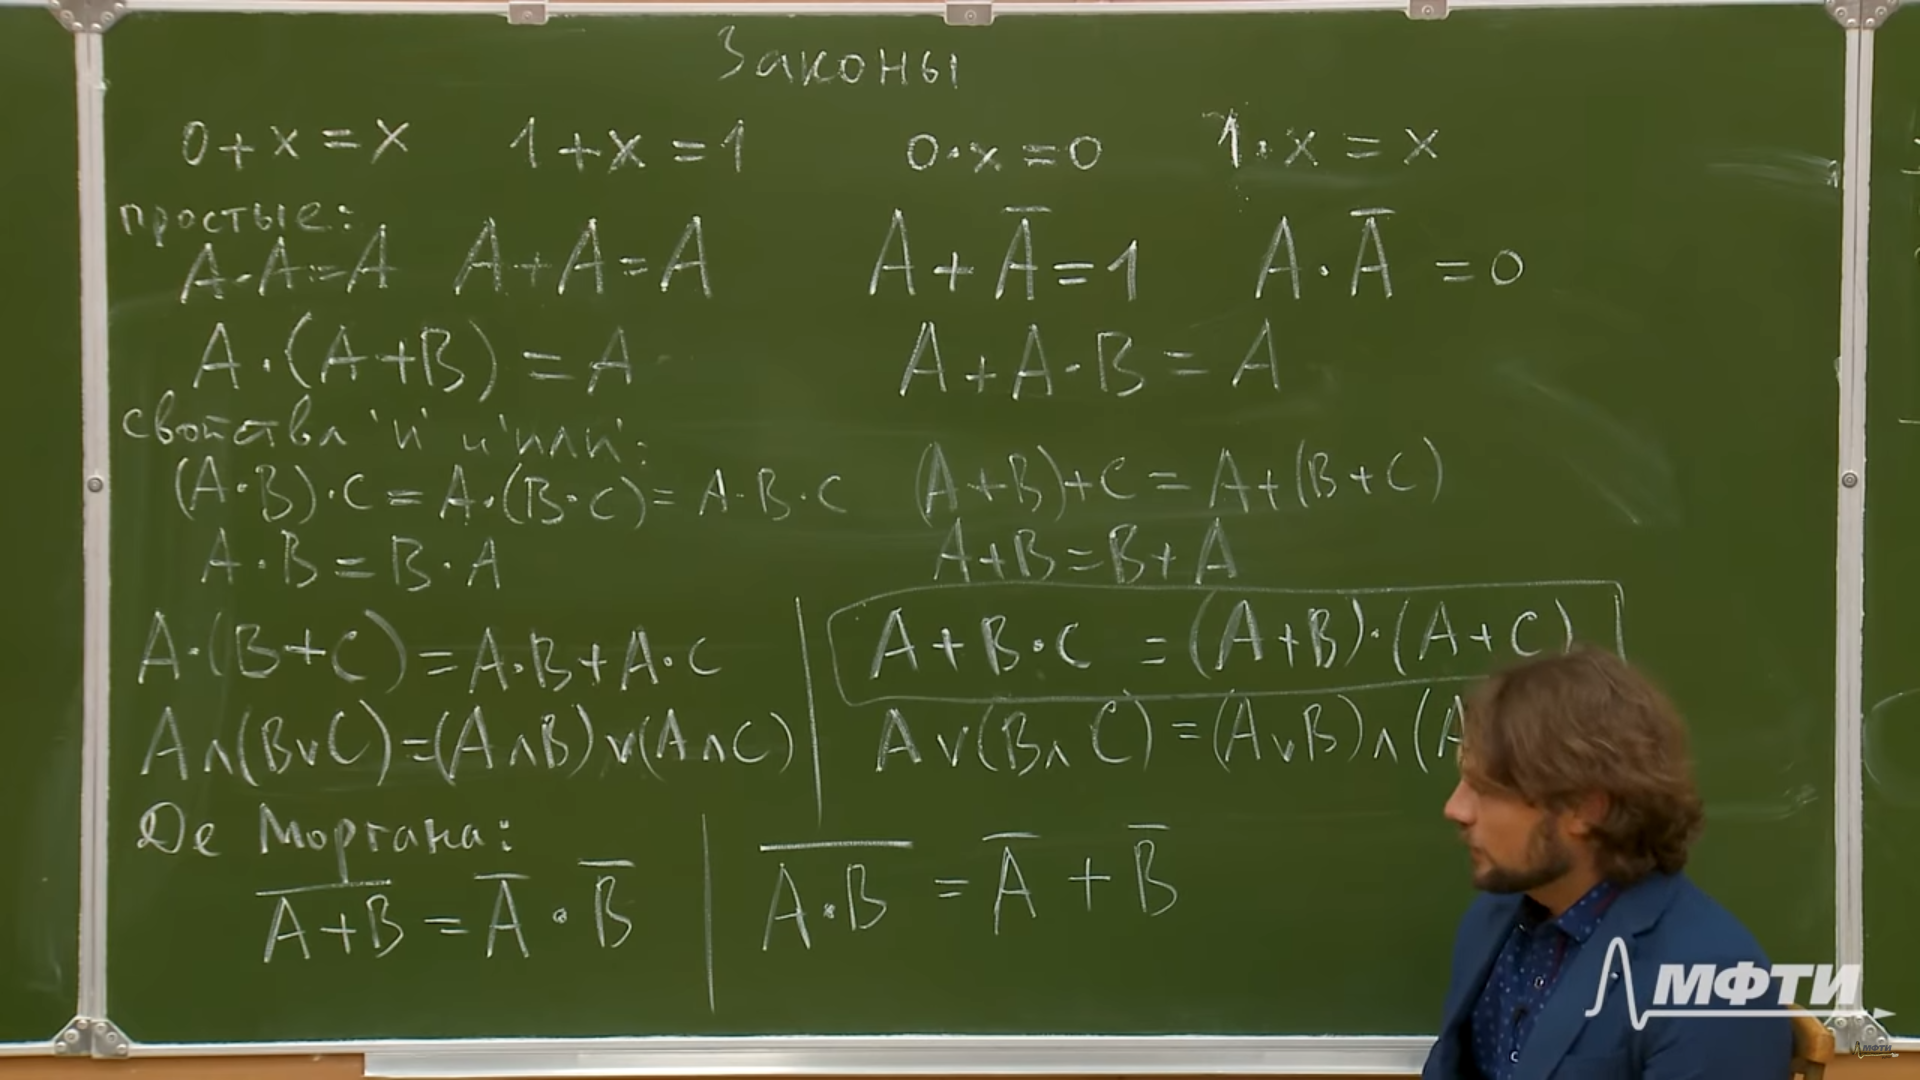 Законы
0+x=x 1+x=1 0·x=0 1·x=x
простые:
A·A=A A+A=A A+A̅=1 A·A̅=0
A·(A+B)=A A+A·B=A
свойства "и" и "или":
(A·B)·C=A·(B·C)=A·B·C (A+B)+C=A+(B+C)
A·B=B·A A+B=B+A
A·(B+C)=A·B+A·C A+B·C=(A+B)·(A+C)
A∧(B∨C)=(A∧B)∨(A∧C) A∨(B∧C)=(A∨B)∧(A
Де Моргана:
A̅+̅B̅=A̅·B̅ A̅·̅B̅=A̅+B̅
МФТИ
МФТИ